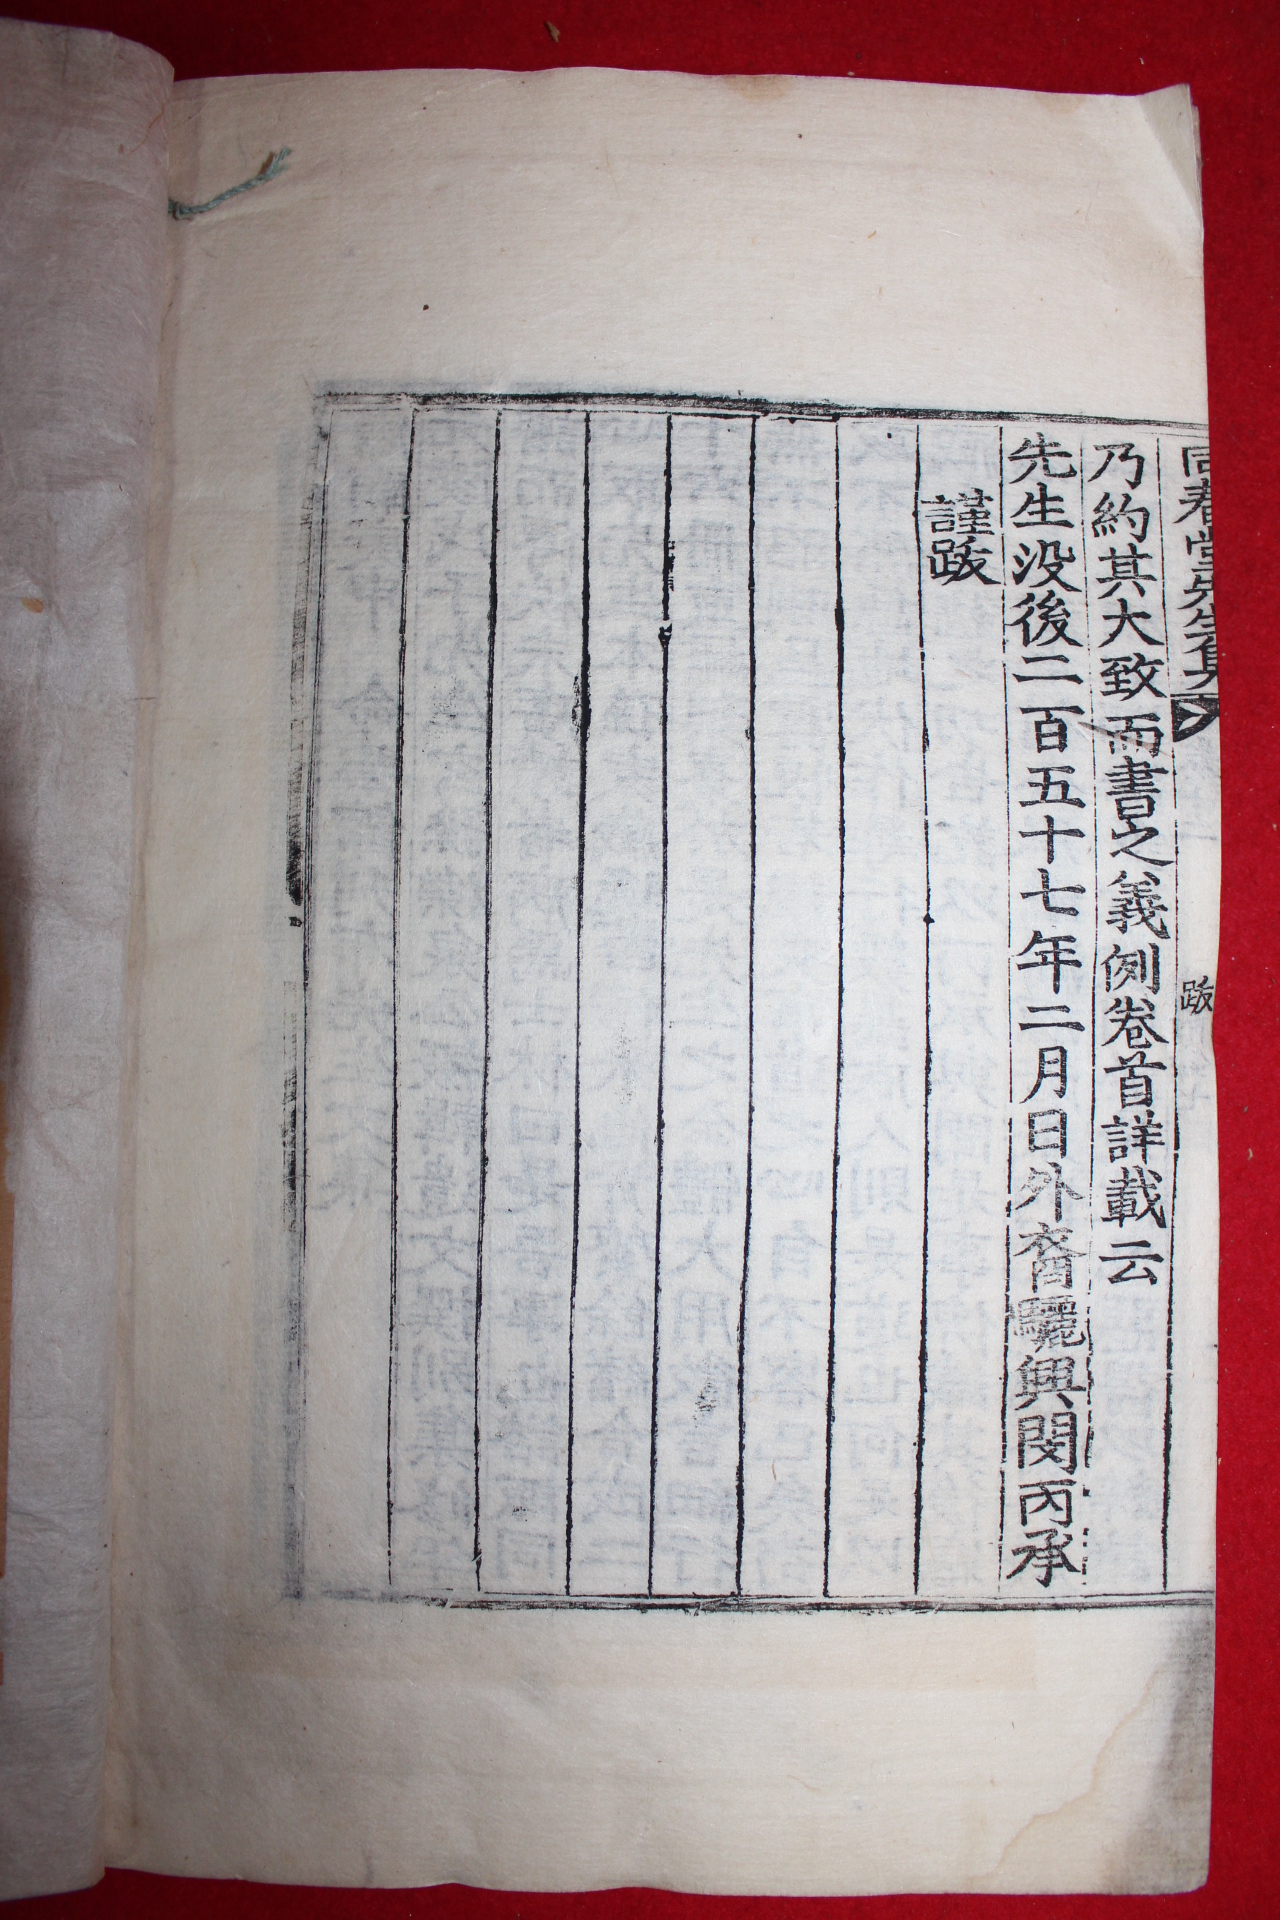 同春堂先生集
跋
乃約其大致而書之義例卷首詳載云
先生没後二百五十七年二月日外裔驪興閔丙承
謹跋